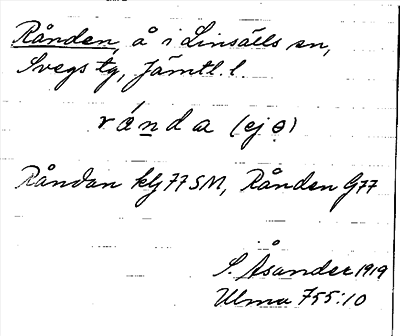 Rånden, å i Linsälls sn,
Svegs tg, Jämtl. l.
ránda (ej ə)
Råndan kG77SM, Rånden G77
S. Åsander 1919
Ulma 755:10